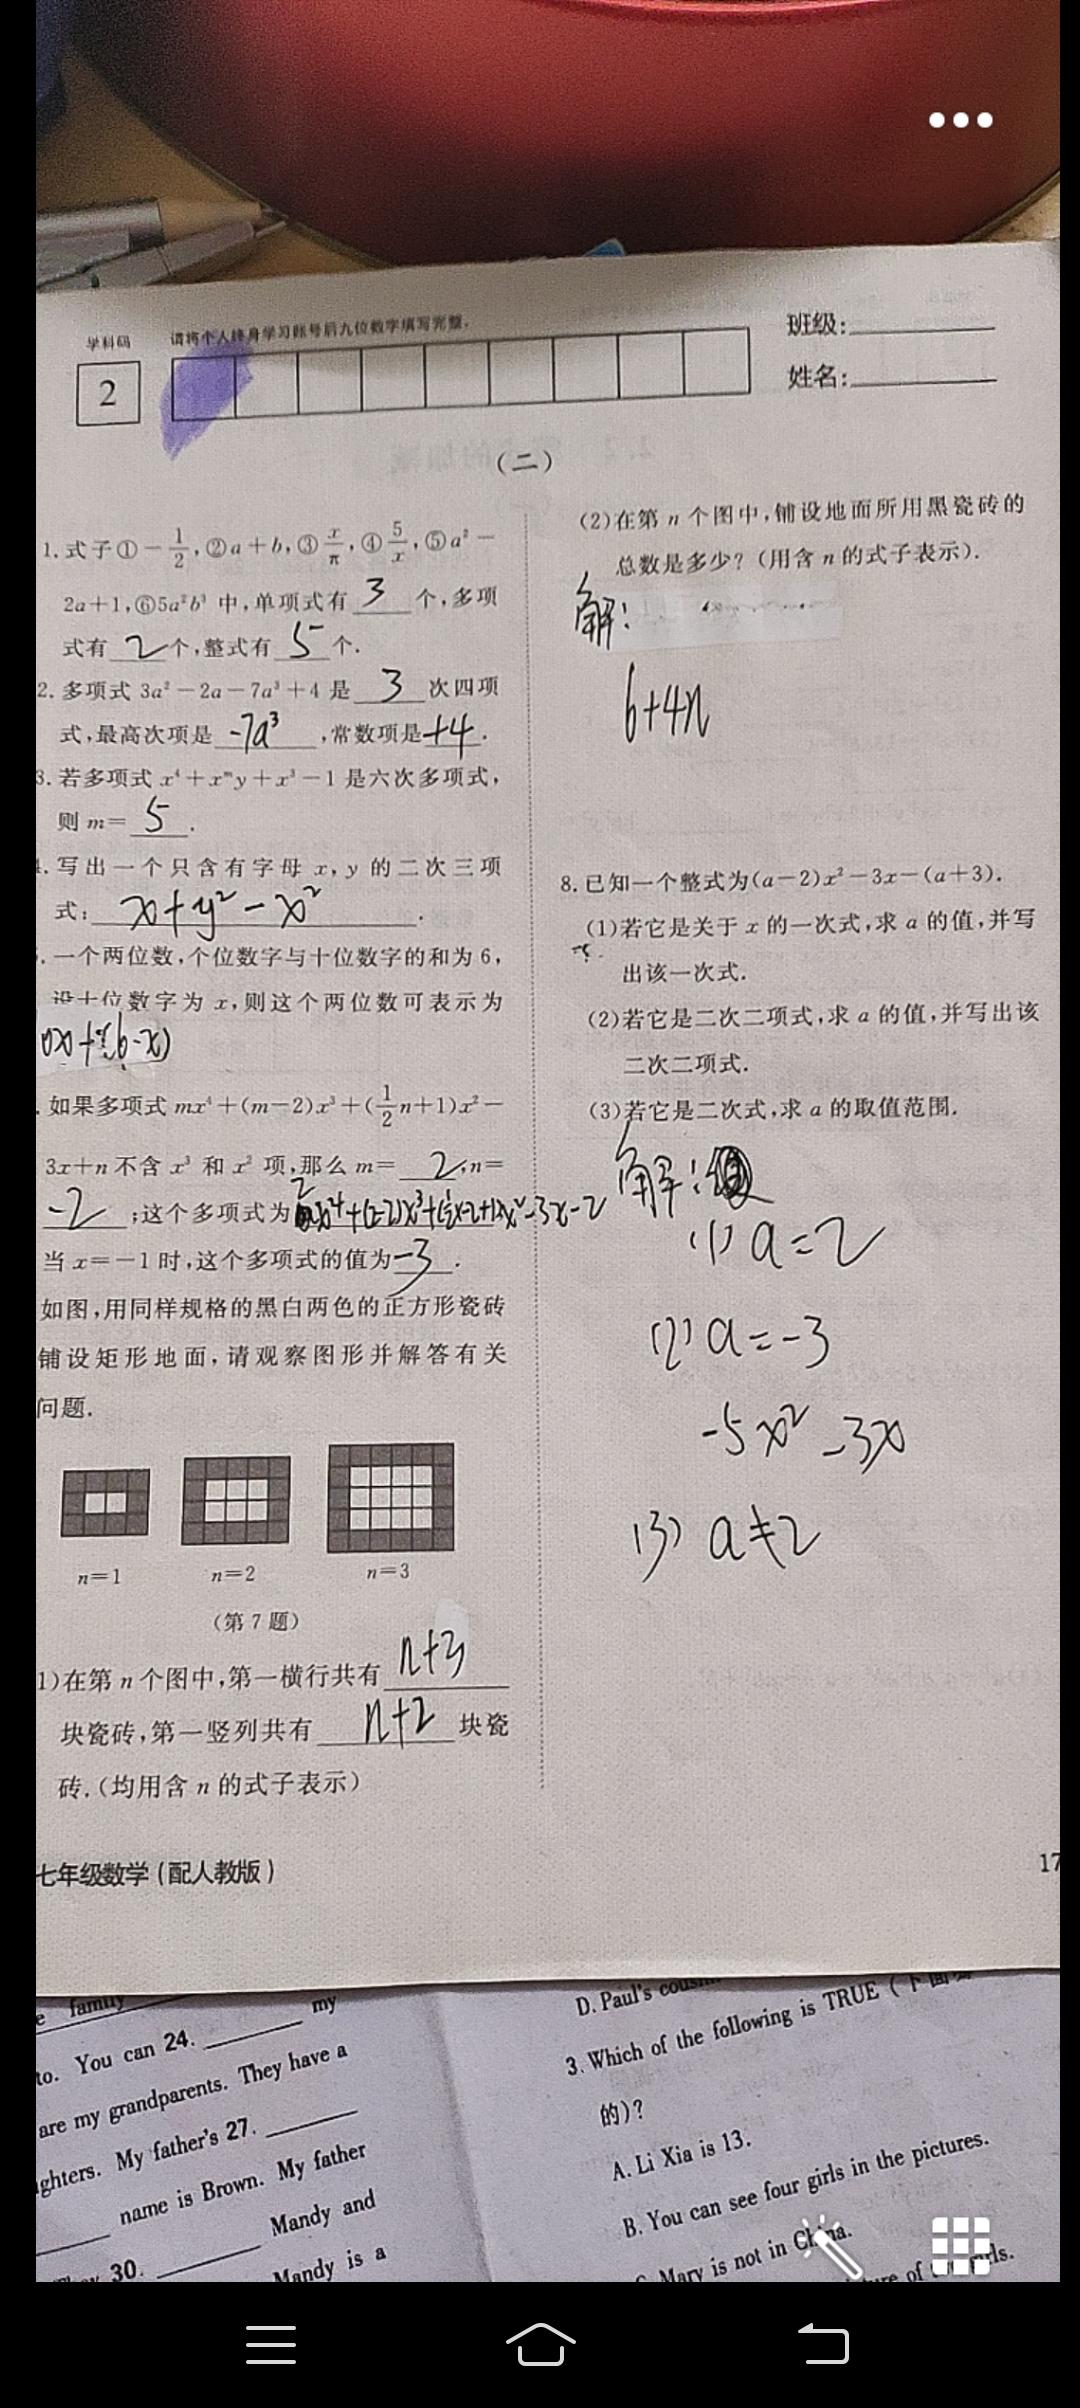 学科码
请将个人终身学习账号后九位数字填写完整.
班级:
2
姓名:
(二)
1.式子①-1/2,②a+b,③x/π,④5/x,⑤a²-
2a+1,⑥5a²b³中,单项式有 3 个,多项
式有 2 个,整式有 5 个.
2.多项式3a²-2a-7a³+4是 3 次四项
式,最高次项是 -7a³ ,常数项是 +4 .
3.若多项式x⁴+xᵐy+x³-1是六次多项式,
则m= 5 .
4.写出一个只含有字母x,y的二次三项
式: x+y²-x² .
.一个两位数,个位数字与十位数字的和为6,
设十位数字为x,则这个两位数可表示为
0x+(6-x)
.如果多项式mx⁴+(m-2)x³+(1/2n+1)x²-
3x+n不含x³和x²项,那么m= 2 ,n=
-2 ;这个多项式为 2x⁴+(2-2)x³+(½×-2+1)x²-3x-2
当x=-1时,这个多项式的值为 -3 .
如图,用同样规格的黑白两色的正方形瓷砖
铺设矩形地面,请观察图形并解答有关
问题.
n=1 n=2 n=3
(第7题)
1)在第n个图中,第一横行共有 n+3
块瓷砖,第一竖列共有 n+2 块瓷
砖.(均用含n的式子表示)
七年级数学(配人教版)
(2)在第n个图中,铺设地面所用黑瓷砖的
总数是多少?(用含n的式子表示).
解:
6+4n
8.已知一个整式为(a-2)x²-3x-(a+3).
(1)若它是关于x的一次式,求a的值,并写
出该一次式.
(2)若它是二次二项式,求a的值,并写出该
二次二项式.
(3)若它是二次式,求a的取值范围.
解:
(1) a=2
(2) a=-3
-5x²-3x
(3) a≠2
17
e family
my
to. You can 24.
are my grandparents. They have a
ghters. My father's 27.
name is Brown. My father
30. Mandy and
Mandy is a
D. Paul's
3. Which of the following is TRUE (
的)?
A. Li Xia is 13.
B. You can see four girls in the pictures.
Mary is not in China.